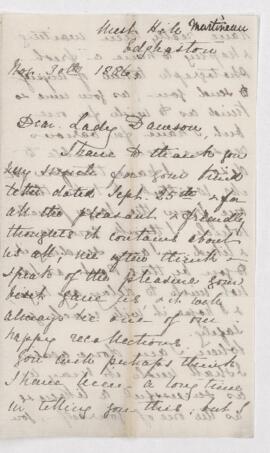 West Hill Martineau
Edgbaston
Nov. 30th 1886
Dear Lady Dawson,
I have to thank you
very much for your kind
letter dated Sept. 25th & for
all the pleasant & friendly
thoughts it contains about
us all. We often think &
speak of the pleasure your
visit gave us & it will
always be one of our
happy recollections.
You will perhaps think
I have been a long time
in telling you this, but I